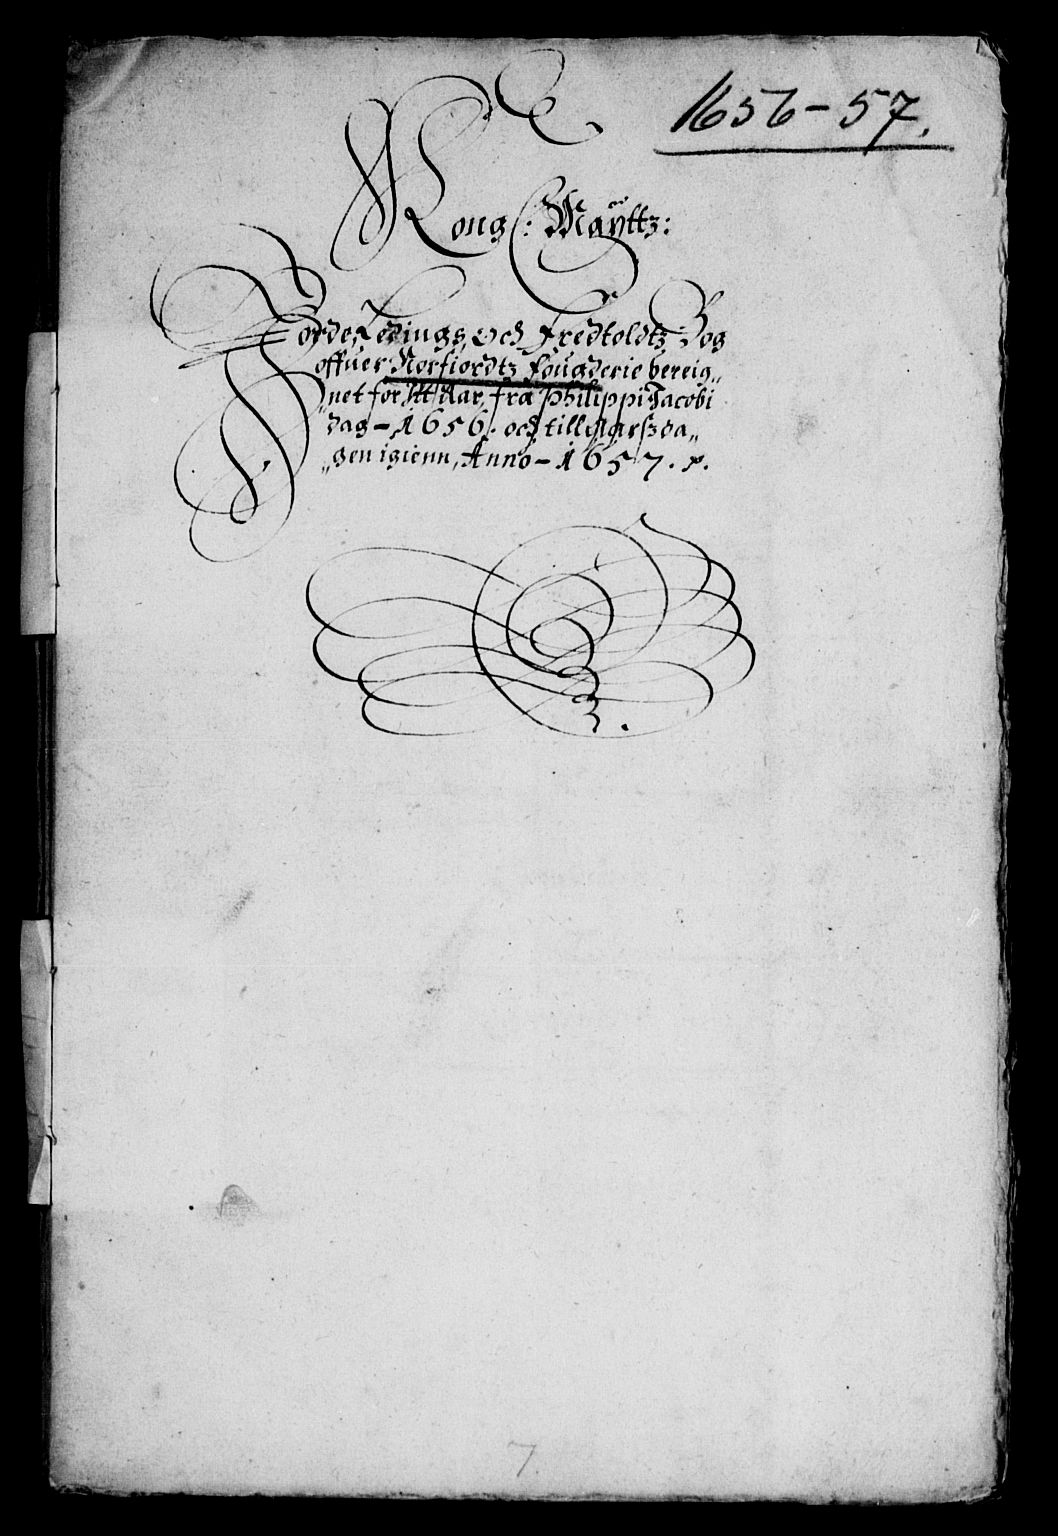 1656-57.
Kong: Maÿttz:
Jorde, Ledings, Och Fredtoldtz Bog
offuer Norfiordtz Fougderie bereig„
„net for Itt Aar, fra Philippi Jacobi
dag - 1656. och till Aarszda„
„gen igienn, Anno - 1657.
7